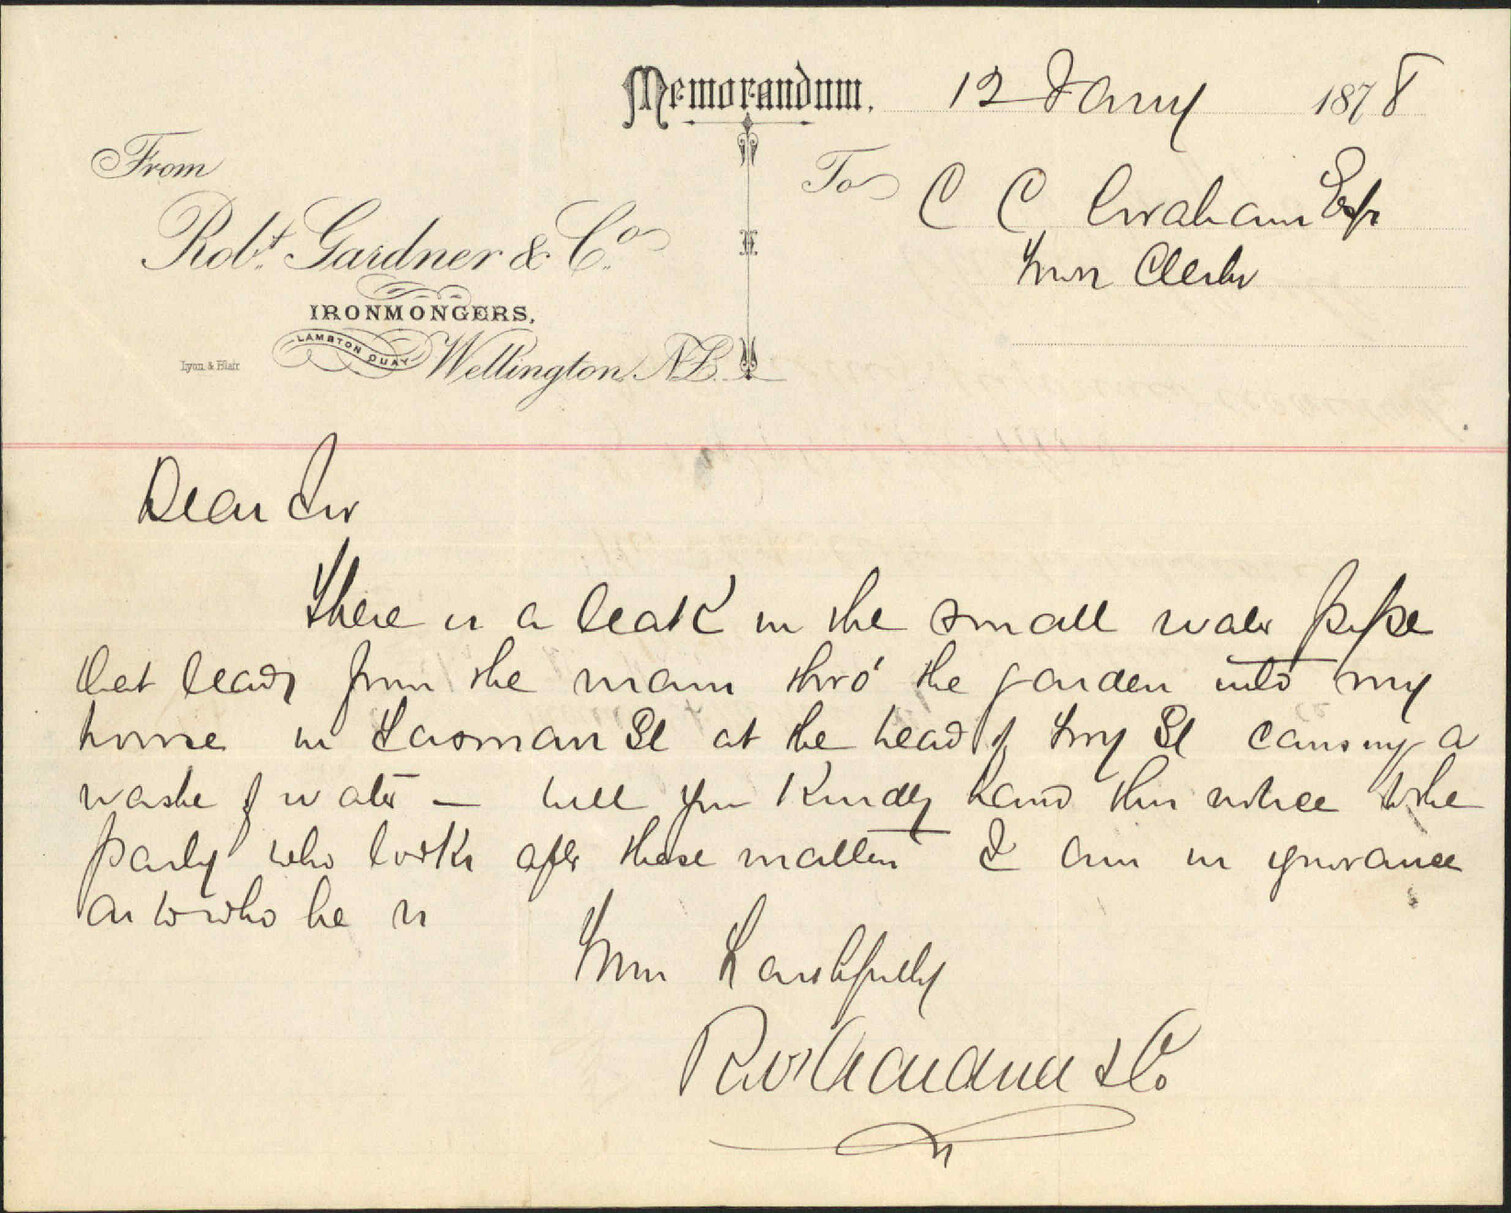 Memorandum. 12 Jany 1878
From
To C C Graham Esqr
Robt. Gardner & Co.
Town Clerk
IRONMONGERS,
LAMBTON QUAY Wellington, N.Z.
Lyon & Blair
Dear Sir
There is a leak in the small water pipe
that leads from the main thro' the garden into my
house in Tasman St at the head of Tory St causing a
waste of water — will you kindly hand this notice to the
party who looks after these matters I am in ignorance
as to who he is
Yours Faithfully
Robt Gardner & Co